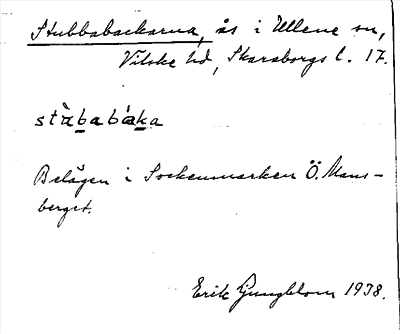 Stubbabackarna, ås i Ullene sn,
Vilske hd, Skaraborgs l. 17.
stùbabàka
Belägen i Sockenmarken Ö. Mans-
berget.
Erik Ljungblom 1938.